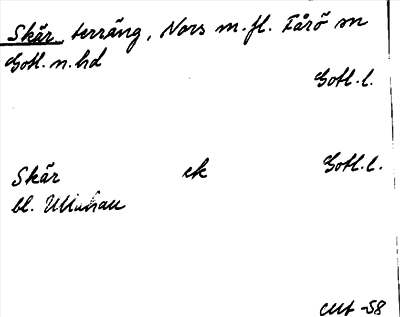 Skär terräng, Nors m.fl. Fårö sn
Gotl. n. hd
Gotl. l.
Skär ek Gotl. l.
bl. Ullahau
-58